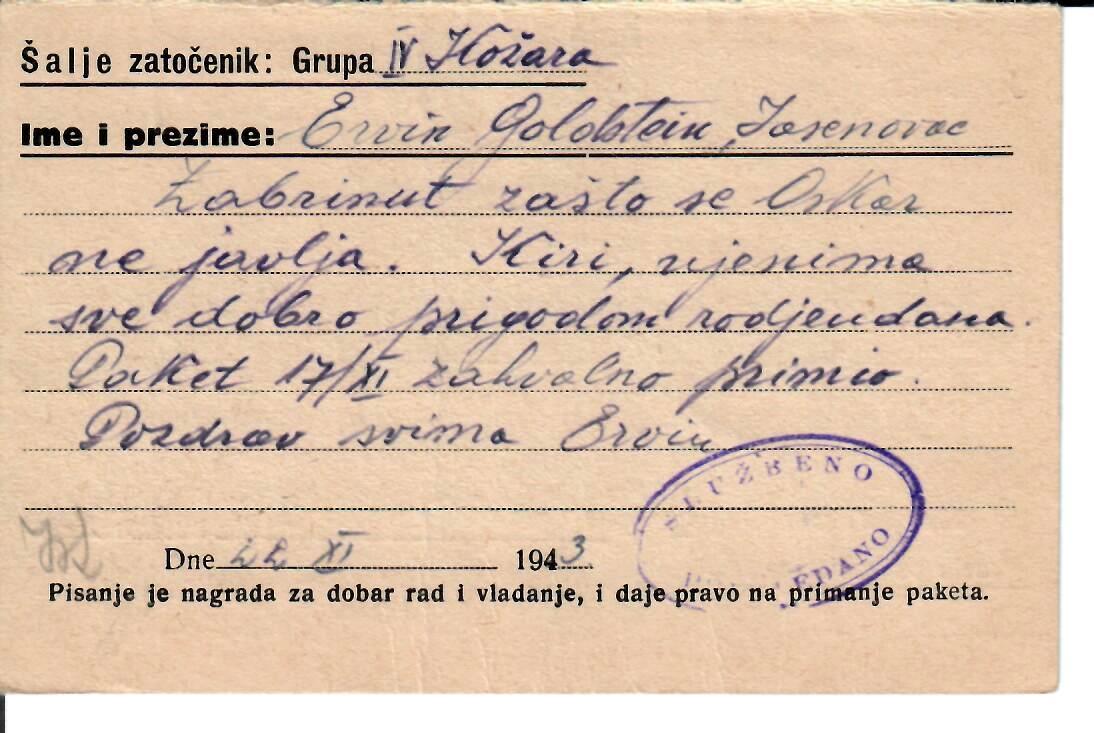 Šalje zatočenik: Grupa IV Kožara
Ime i prezime: Ervin Goldstein, Jasenovac
Zabrinut zašto se Oskar
ne javlja. Kiri, njenima
sve dobro prigodom rodjendana.
Paket 17/XI zahvalno primio.
Pozdrav svima Ervin
SLUŽBENO
Dne 22 XI 1943.
Pisanje je nagrada za dobar rad i vladanje, i daje pravo na primanje paketa.